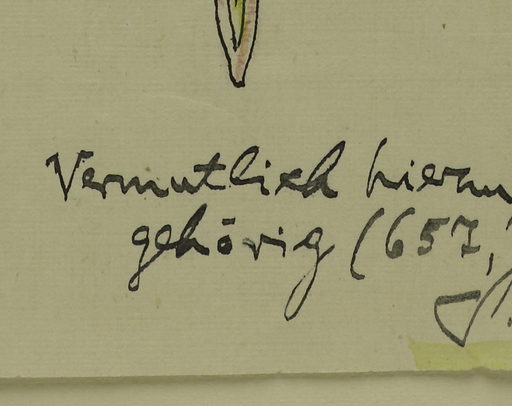 Vermutlich hierzu
gehörig (657,